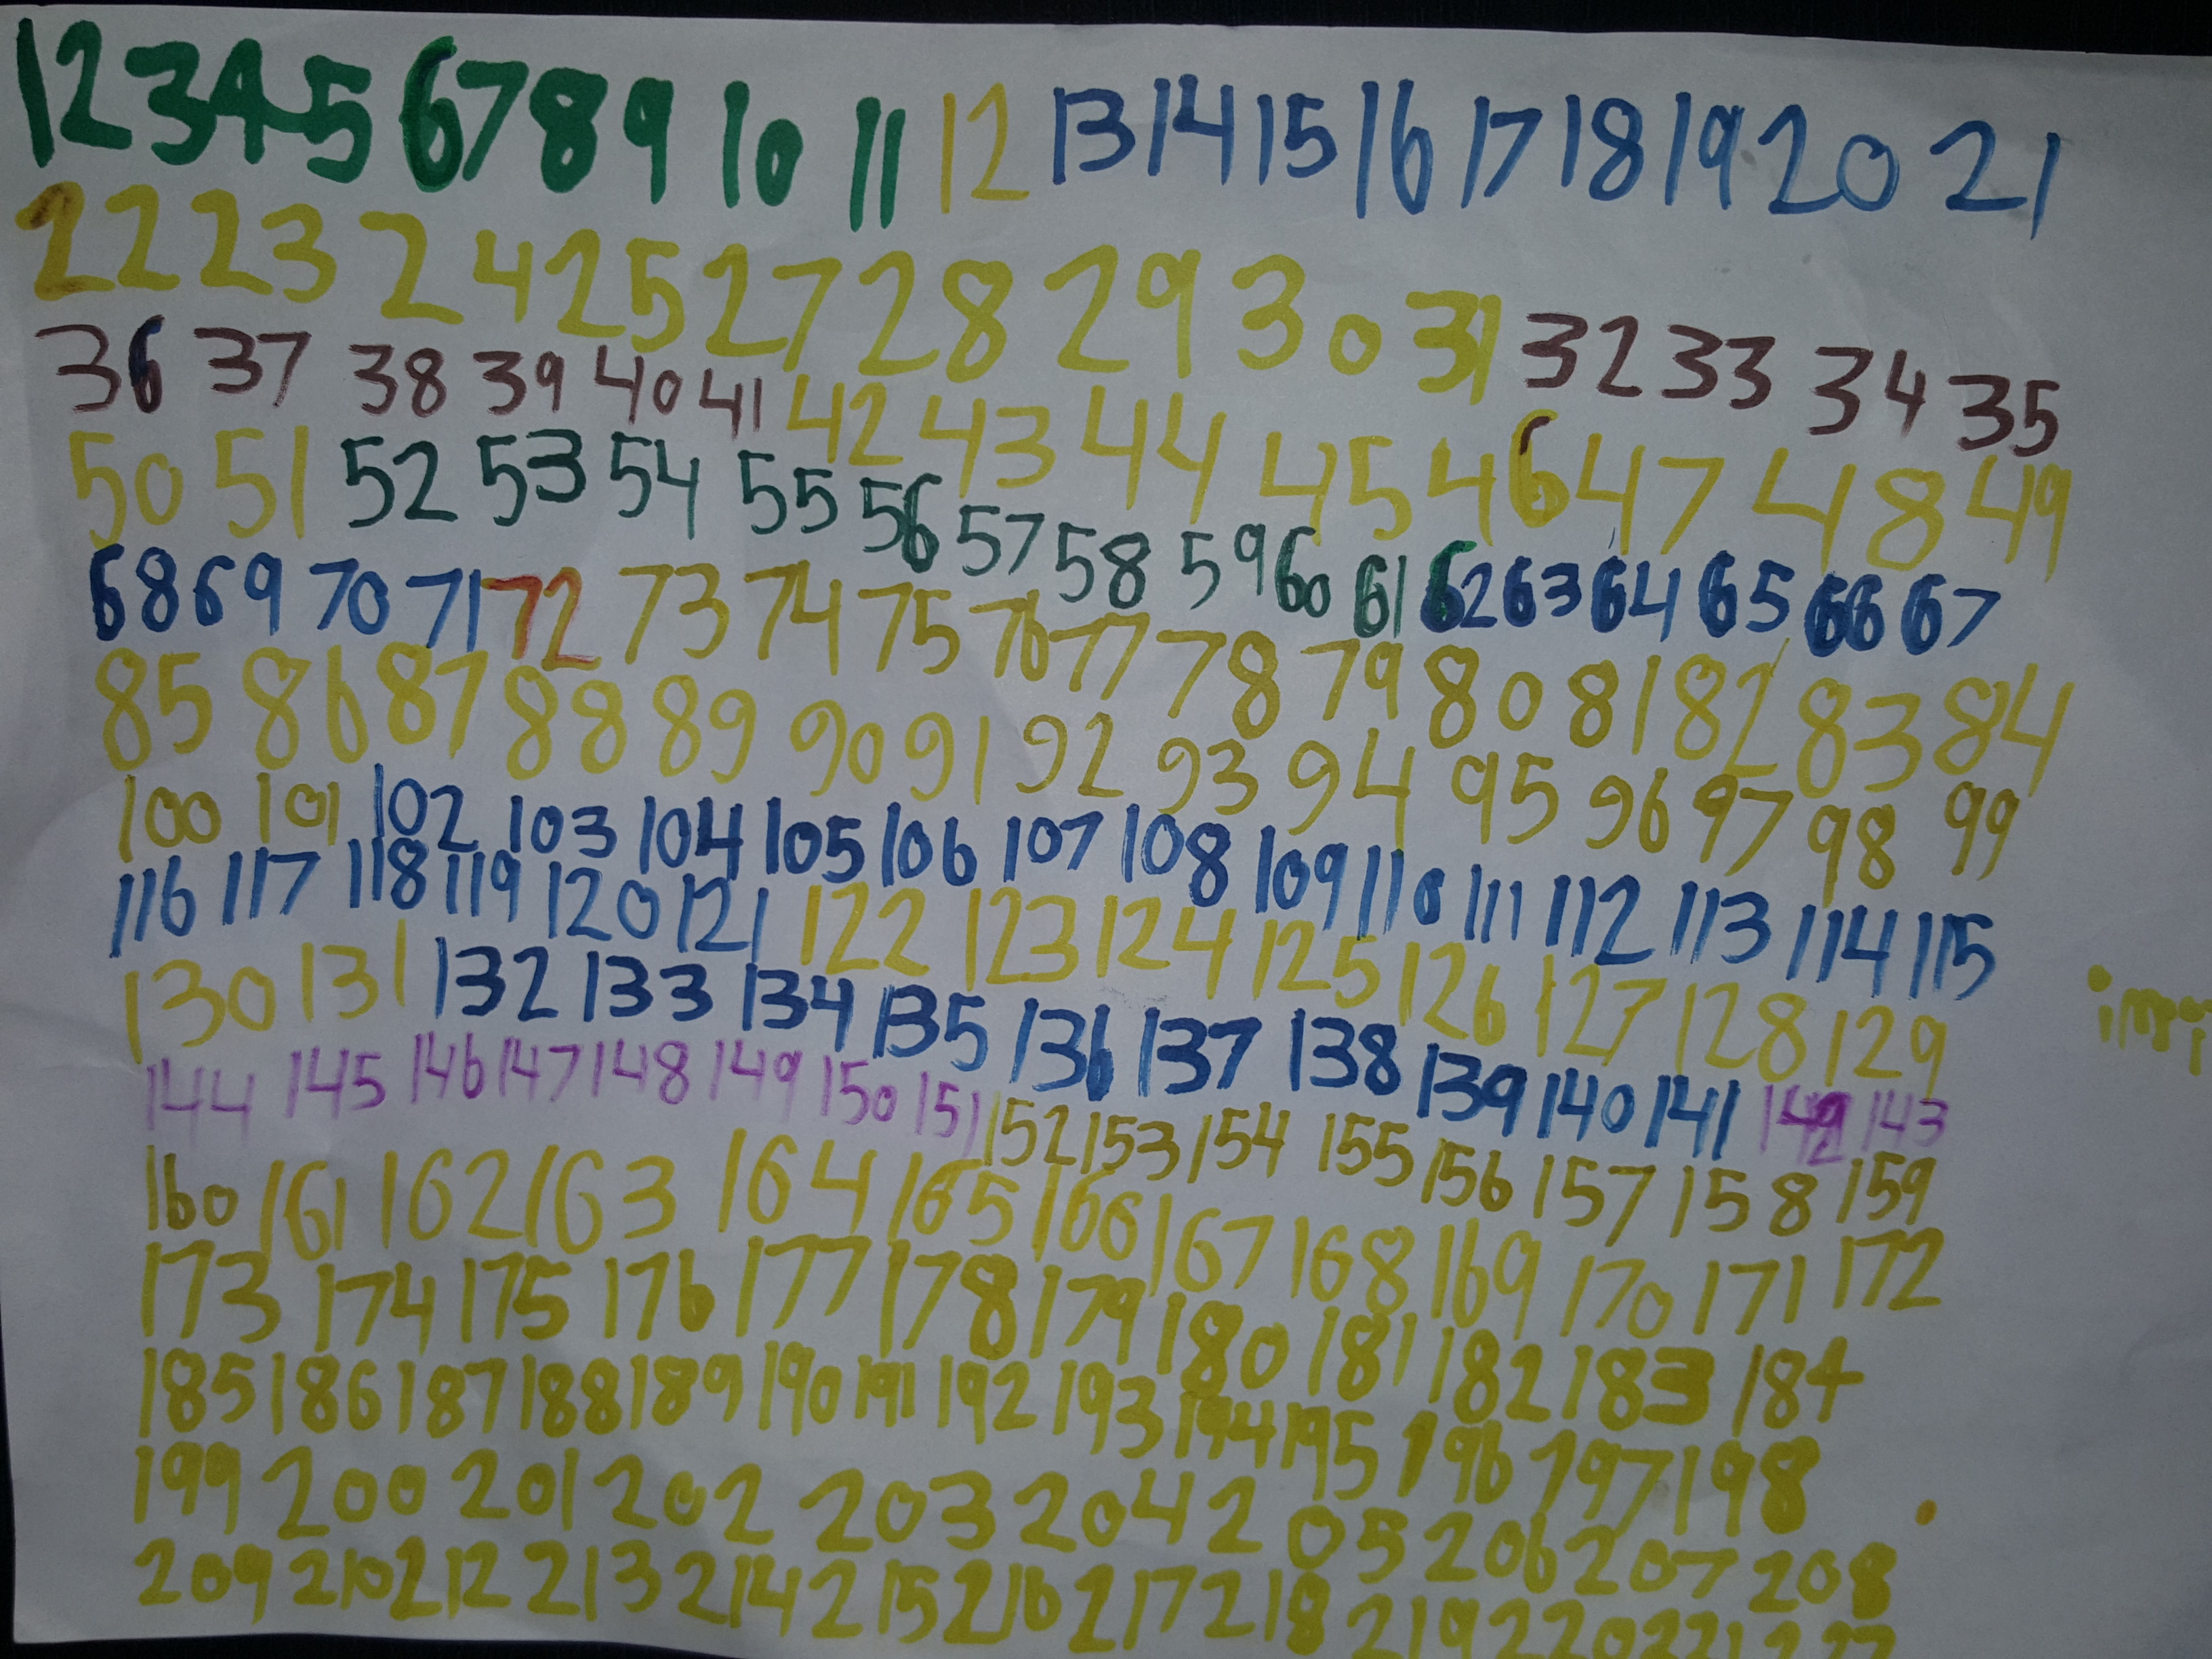 1 2 3 4 5 6 7 8 9 10 11 12 13 14 15 16 17 18 19 20 21
22 23 24 25 27 28 29 30 31 32 33 34 35
36 37 38 39 40 41 42 43 44 45 46 47 48 49
50 51 52 53 54 55 56 57 58 59 60 61 62 63 64 65 66 67
68 69 70 71 72 73 74 75 76 77 78 79 80 81 82 83 84
85 86 87 88 89 90 91 92 93 94 95 96 97 98 99
100 101 102 103 104 105 106 107 108 109 110 111 112 113 114 115
116 117 118 119 120 121 122 123 124 125 126 127 128 129
130 131 132 133 134 135 136 137 138 139 140 141 142 143
144 145 146 147 148 149 150 151 152 153 154 155 156 157 158 159
160 161 162 163 164 165 166 167 168 169 170 171 172
173 174 175 176 177 178 179 180 181 182 183 184
185 186 187 188 189 190 191 192 193 194 195 196 197 198
199 200 201 202 203 204 205 206 207 208
209 210 212 213 214 215 216 217 218 219 220 221